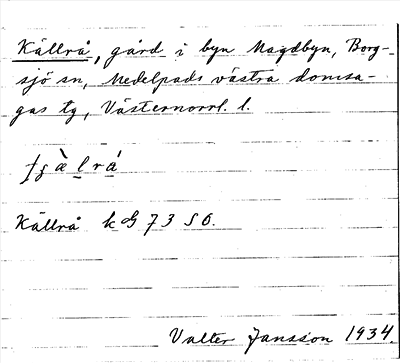 Källrå, gård i byn Magdbyn, Borg-
sjö sn, Medelpads västra domsa-
gas tg, Västernorrl. l.
Källrå kG 73 SO.
Valter Jansson 1934